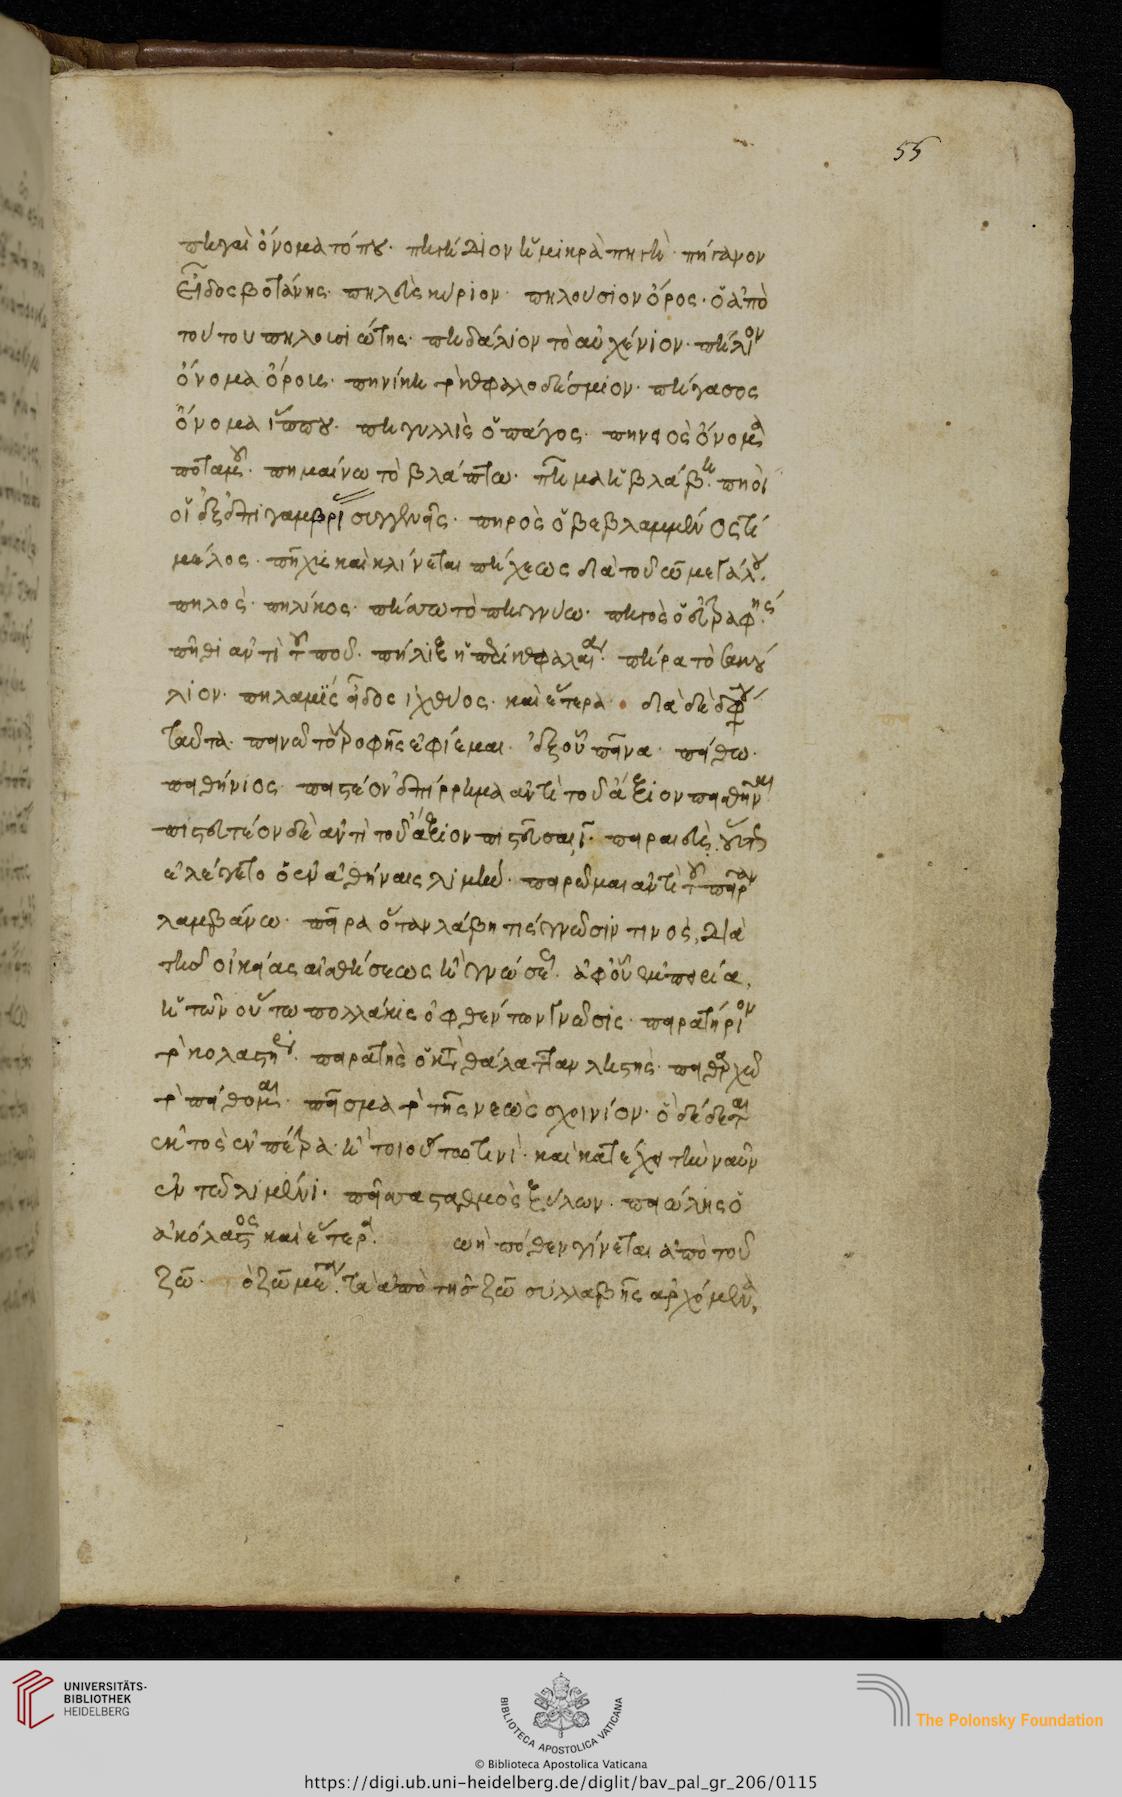 55
πηγαὶ ὄνομα τόπου. πηκτίδιον ἡ μικρὰ πηκτὴ. πήγανον
εἶδος βοτάνης. πηλεὺς κύριον. πηλούσιον ὄρος. ὁ ἀπὸ
τούτου πηλουσιώτης. πηδάλιον τὸ αὐχένιον. πήλιον
ὄνομα ὄρους. πηνίκη κεφαλοδέσμιον. πήγασος
ὄνομα ἵππου. πηγυλλὶς ὁ πάγος. πηνειὸς ὄνομα
ποταμοῦ. πημαίνω τὸ βλάπτω. πῆμα ἡ βλάβη. πηοὶ
οἱ ἐξ ἐπιγαμβρίου συγγενεῖς. πηρὸς ὁ βεβλαμμένος τι
μέλος. πῆχυς καὶ κλίνεται πήχεως διὰ τοῦ ω μεγάλου.
πηλός. πηλίκος. τὸ πηγνύω. ὁ
πῆθι ἀντὶ τοῦ ποῦ. πήληξ ἡ περικεφαλαία. πήρα τὸ
λιον. πηλαμὶς εἶδος ἰχθύος. καὶ ἕτερα. διὰ δὲ διφθόγγου
ταῦτα. πεινῶ τὸ τροφῆς ἐφίεμαι. ἐξ οὗ πεῖνα. πείθω.
πειθήνιος. ἐπίρρημα ἀντὶ τοῦ ἄξιον πεισθῆναι
πιστευτέον δὲ ἀντὶ τοῦ ἄξιον πιστεῦσαι, ι. πειραιεὺς οὕτως
ἐλέγετο ὁ ἐν ἀθήναις λιμήν. πειρῶμαι ἀντὶ τοῦ πεῖραν
λαμβάνω. πεῖρα ὅταν λάβη τις γνῶσίν τινος, διὰ
τῆς οἰκείας αἰσθήσεως ἡ γνώσεως. ἀφ' οὗ ἐμπειρία,
ἡ τῶν οὕτω πολλάκις ὀφθέντων γνῶσις. πειρατήριον
κολαστήριον. πειρατὴς ὁ κατὰ θάλατταν ληστής. πειθαρχῶ
πείθομαι. πεῖσμα τῆς νεὼς σχοινίον. ὃ δέδεται
ἐκτὸς ἐν πέτρα. ἡ τοιούτω τινὶ. καὶ κατέχει τὴν ναῦν
ἐν τῶ λιμένι. σταθμὸς ξύλων. πειώλης ὁ
ἀκόλαστος καὶ ἕτερα. ωη πόθεν γίνεται ἀπὸ τοῦ
ζῶ. ὀζῶμεν. τὰ ἀπὸ τῆς ζω συλλαβῆς ἀρχόμενα,
UNIVERSITÄTS-
BIBLIOTHEK
HEIDELBERG
BIBLIOTECA APOSTOLICA VATICANA
The Polonsky Foundation
© Biblioteca Apostolica Vaticana
https://digi.ub.uni-heidelberg.de/diglit/bav_pal_gr_206/0115